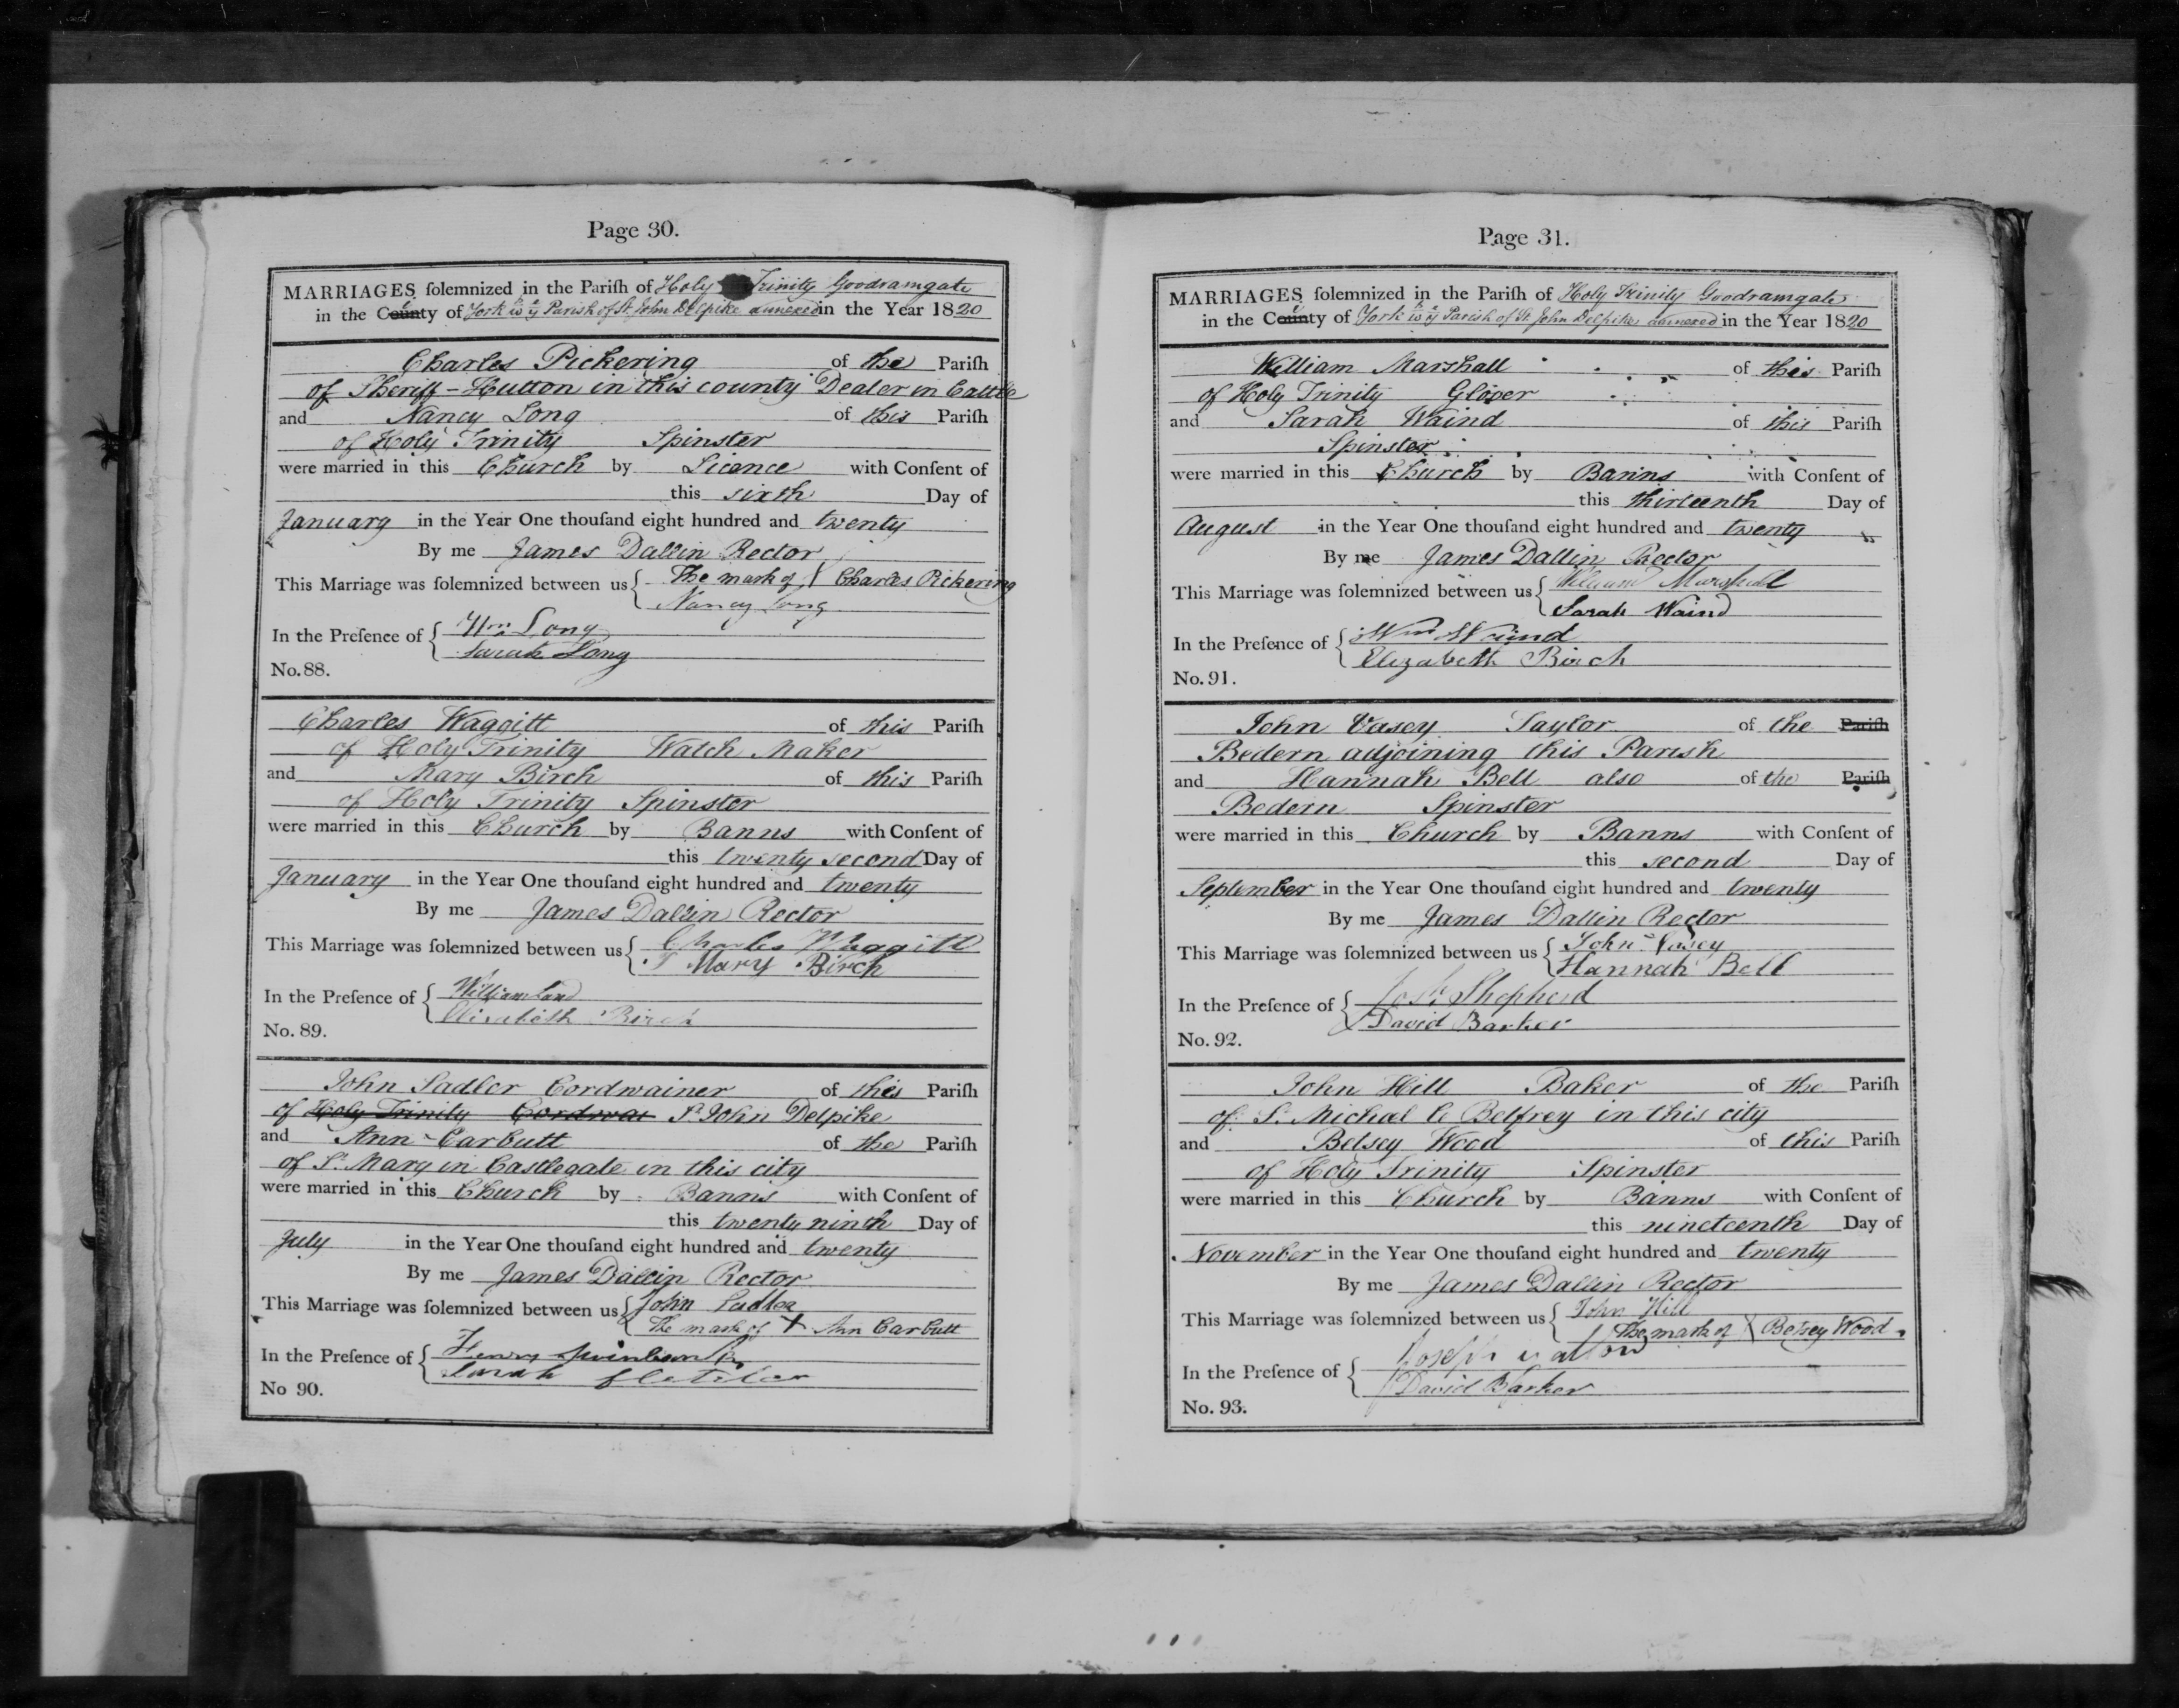 Page 30.
MARRIAGES solemnized in the Parish of Holy Trinity Goodramgate
in the County of York wth ye Parish of St. John Delpike annexed in the Year 1820
Charles Pickering of the Parish
of Sheriff-Hutton in this county Dealer in Cattle
and Nancy Long of this Parish
of Holy Trinity Spinster
were married in this Church by Licence with Consent of
this sixth Day of
January in the Year One thousand eight hundred and twenty
By me James Dallin Rector
This Marriage was solemnized between us The mark of Charles Pickering
Nancy Long
In the Presence of Wm Long
Sarah Long
No. 88.
Charles Waggitt of this Parish
of Holy Trinity Watch Maker
and Mary Birch of this Parish
of Holy Trinity Spinster
were married in this Church by Banns with Consent of
this twenty second Day of
January in the Year One thousand eight hundred and twenty
By me James Dallin Rector
This Marriage was solemnized between us Charles Waggitt
Mary Birch
In the Presence of William
Elizabeth Birch
No. 89.
John Sadler Cordwainer of this Parish
of Holy Trinity Cordwai St. John Delpike
and Ann Carbutt of the Parish
of St. Mary in Castlegate in this city
were married in this Church by Banns with Consent of
this twenty ninth Day of
July in the Year One thousand eight hundred and twenty
By me James Dallin Rector
This Marriage was solemnized between us John Sadler
The mark of X Ann Carbutt
In the Presence of Henry
Sarah fletcher
No 90.
Page 31.
MARRIAGES solemnized in the Parish of Holy Trinity Goodramgate
in the County of York wth ye Parish of St. John Delpike annexed in the Year 1820
William Marshall of this Parish
of Holy Trinity Glover
and Sarah Waind of this Parish
Spinster
were married in this Church by Banns with Consent of
this thirteenth Day of
August in the Year One thousand eight hundred and twenty
By me James Dallin Rector
This Marriage was solemnized between us William Marshall
Sarah Waind
In the Presence of Wm Waind
Elizabeth Birch
No. 91.
John Vasey Taylor of the Parish
Bedern adjoining this Parish
and Hannah Bell also of the Parish
Bedern Spinster
were married in this Church by Banns with Consent of
this second Day of
September in the Year One thousand eight hundred and twenty
By me James Dallin Rector
This Marriage was solemnized between us John Vasey
Hannah Bell
In the Presence of Josh Shepherd
David Barker
No. 92.
John Hill Baker of the Parish
of St. Michael le Belfrey in this city
and Betsey Wood of this Parish
of Holy Trinity Spinster
were married in this Church by Banns with Consent of
this nineteenth Day of
November in the Year One thousand eight hundred and twenty
By me James Dallin Rector
This Marriage was solemnized between us John Hill
The mark of X Betsey Wood
In the Presence of Joseph
David Barker
No. 93.